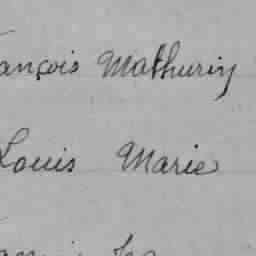 ançois Mathurin
Louis Marie